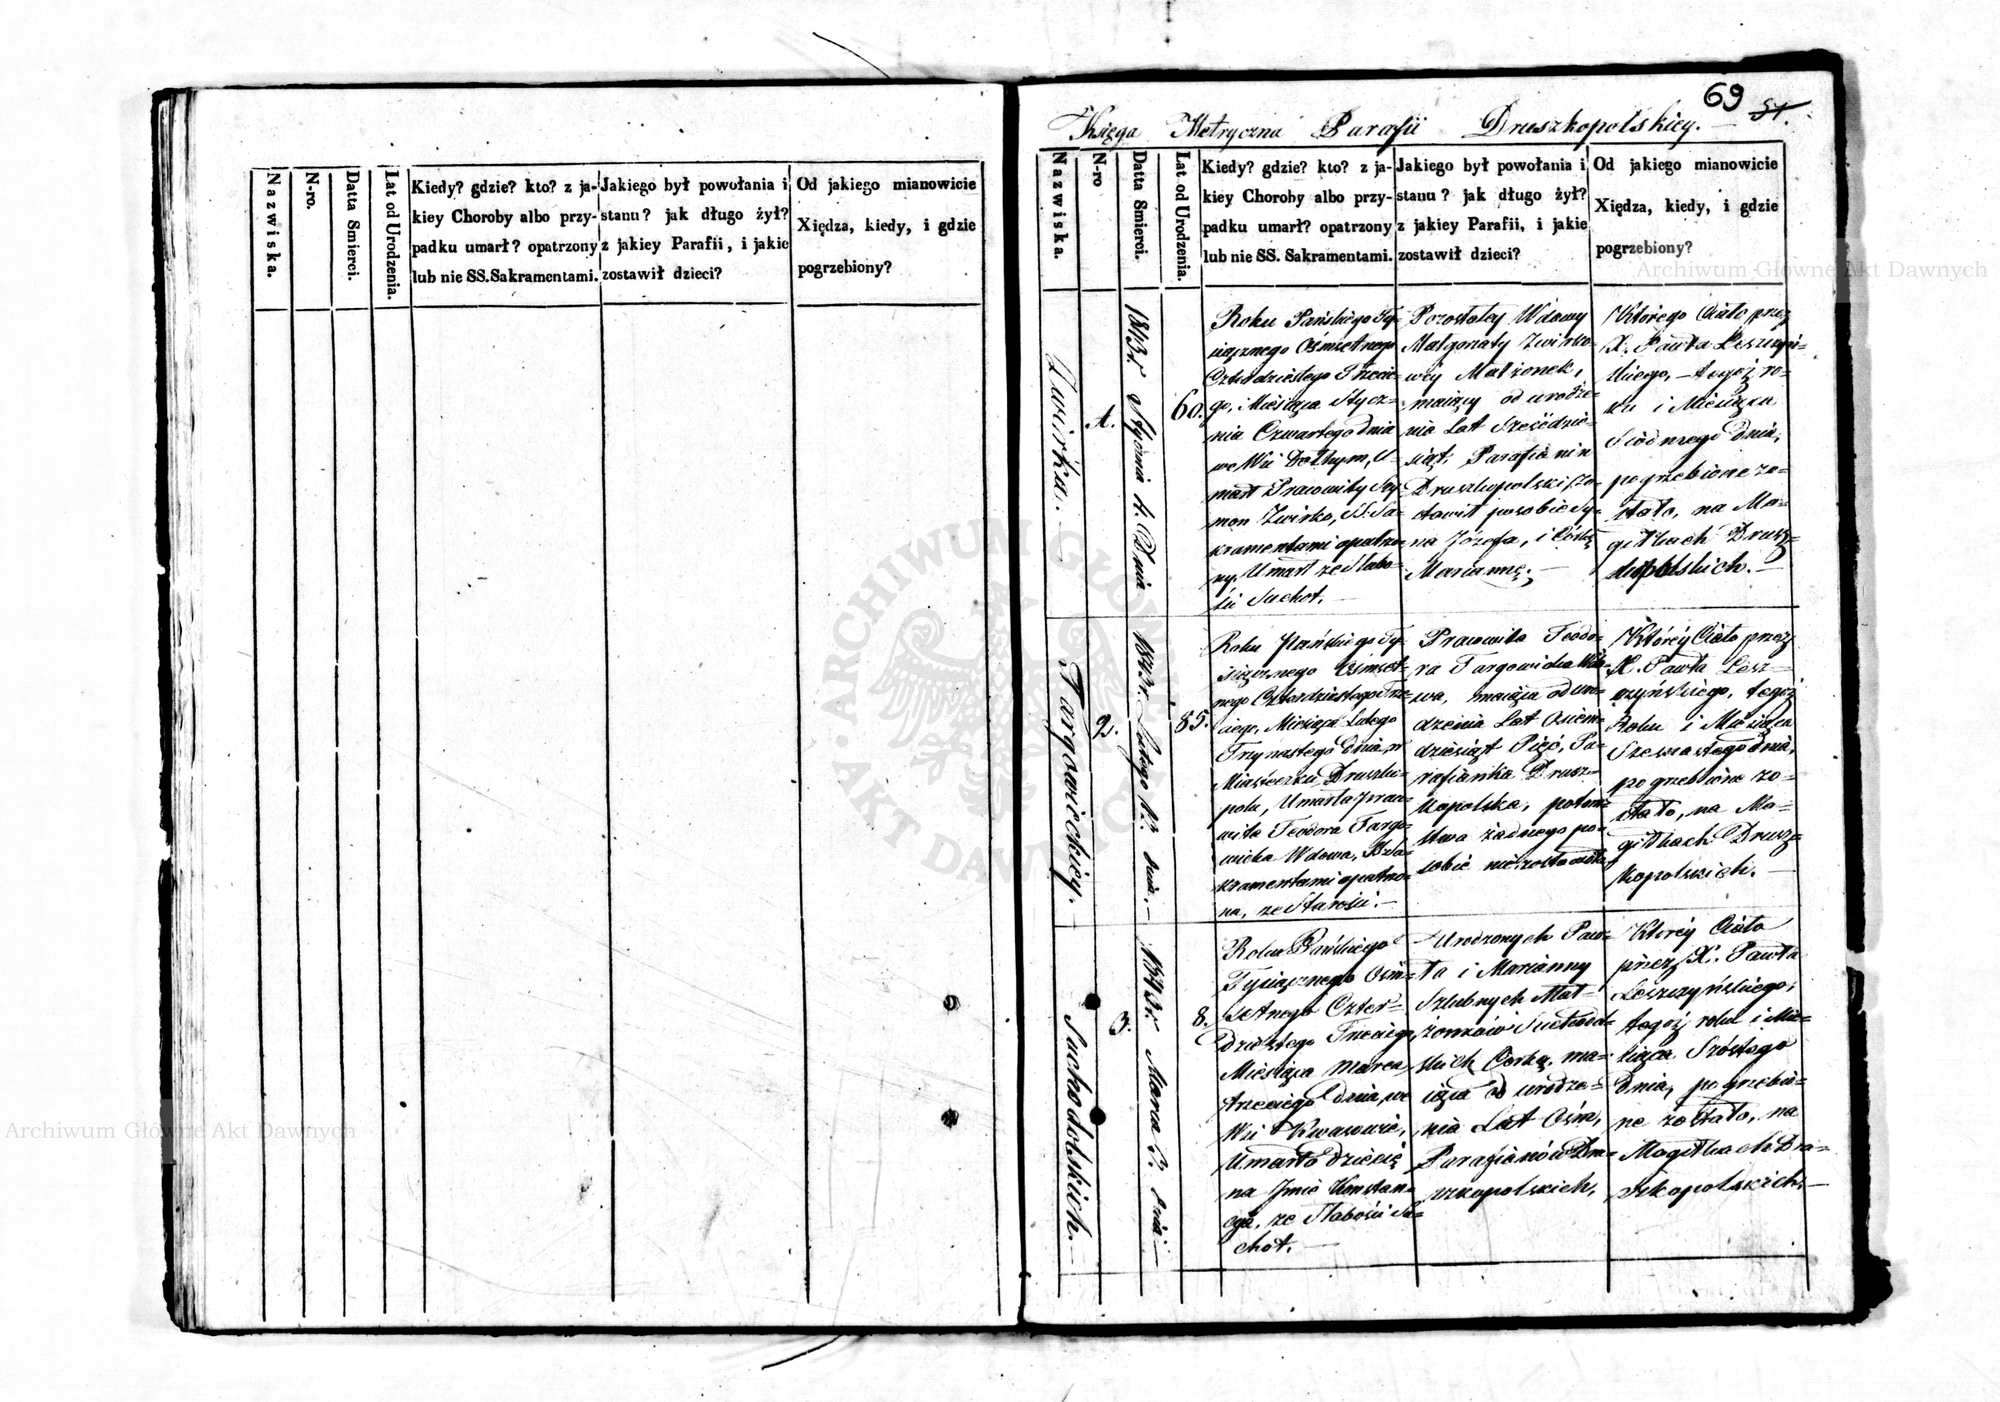 69 51.
Księga Metryczna Parafii Druszkopolskiey.
Nazwiska.
N-ro.
Datta Smierci.
Lat od Urodzenia.
Kiedy? gdzie? kto? z ja-
kiey Choroby albo przy-
padku umarł? opatrzony
lub nie SS. Sakramentami.
Jakiego był powołania i
stanu? jak długo żył?
z jakiey Parafii, i jakie
zostawił dzieci?
Od jakiego mianowicie
Xiędza, kiedy, i gdzie
pogrzebiony?
Nazwiska.
N-ro
Datta Smierci.
Lat od Urodzenia.
Kiedy? gdzie? kto? z ja-
kiey Choroby albo przy-
padku umarł? opatrzony
lub nie SS. Sakramentami.
Jakiego był powołania i
stanu? jak długo żył?
z jakiey Parafii, i jakie
zostawił dzieci?
Od jakiego mianowicie
Xiędza, kiedy, i gdzie
pogrzebiony?
Zwirka.
1.
1843r Stycznia 4. Dnia
60.
Roku Pańskiego Ty-
siącznego Osmsetnego
Czterdziestego Trzecie-
go, Miesiąca Stycz-
nia Czwartego dnia
we Wsi U-
marł Pracowity Szy-
mon Zwirko, SS. Sa-
kramentami opatrzo-
ny. Umarł ze Słabo-
ści Suchot.
Pozostałey Wdowy
Małgorzaty Zwirko-
wey Małżonek,
maiący od urodze-
nia Lat Sześćdzie-
siąt, Parafianin
Druszkopolski, zo-
stawił po sobie Sy-
na Józefa, i Córkę
Mariannę.
Którego Ciało przez
X. Pawła Leszczyń-
skiego, tegoż ro-
ku i Miesiąca
Siódmego dnia,
pogrzebione zo-
stało, na Mo-
giłkach Drusz-
kopolskich.
Targowieckiey.
2.
1843r. Lutego 13. dnia.
85.
Roku Pańskiego Ty-
siącznego Osmset-
nego Czterdziestego Trze-
ciego, Miesiąca Lutego
Trzynastego dnia, w
Miasteczku Druszko-
polu, Umarła Praco-
wita Teodora Targo-
wicka Wdowa, SSSa-
kramentami opatrzo-
na, ze Starości.
Pracowita Teodo-
ra Targowicka Wdo-
wa, maiąca od uro-
dzenia Lat Osiem-
dziesiąt Pięć, Pa-
rafianka Drusz-
kopolska, potom-
stwa żadnego po
sobie nie zostawiła
Którey Ciało przez
X. Pawła Lesz-
czyńskiego, tegoż
Roku i Miesiąca
Szesnastego dnia,
pogrzebione zo-
stało, na Mo-
giłkach Drusz-
kopolskich.
Suchodolskich.
3.
1843r. Marca 3. dnia.
8.
Roku Pańskiego
Tysiącznego Osm-
setnego Czter-
dziestego Trzeciego,
Miesiąca Marca
trzeciego dnia, we
Wsi Kwasowie,
Umarło dziecię
na Jmie Konstan-
cya, ze Słabości Su-
chot.
Urodzonych Paw-
ła i Marianny
Szlubnych Mał-
żonków Suchodol-
skich Corka, ma-
iąca od urodze-
nia Lat Ośm,
Parafianów Dru-
szkopolskich.
Ktorey Ciało
przez X. Pawła
Leszczyńskiego,
tegoż roku i Mie-
siąca Szóstego
dnia, pogrzebio-
ne zostało, na
Mogiłkach Dru-
szkopolskich.
ARCHIWUM GŁÓWNE AKT DAWNYCH
Archiwum Główne Akt Dawnych
Archiwum Główne Akt Dawnych